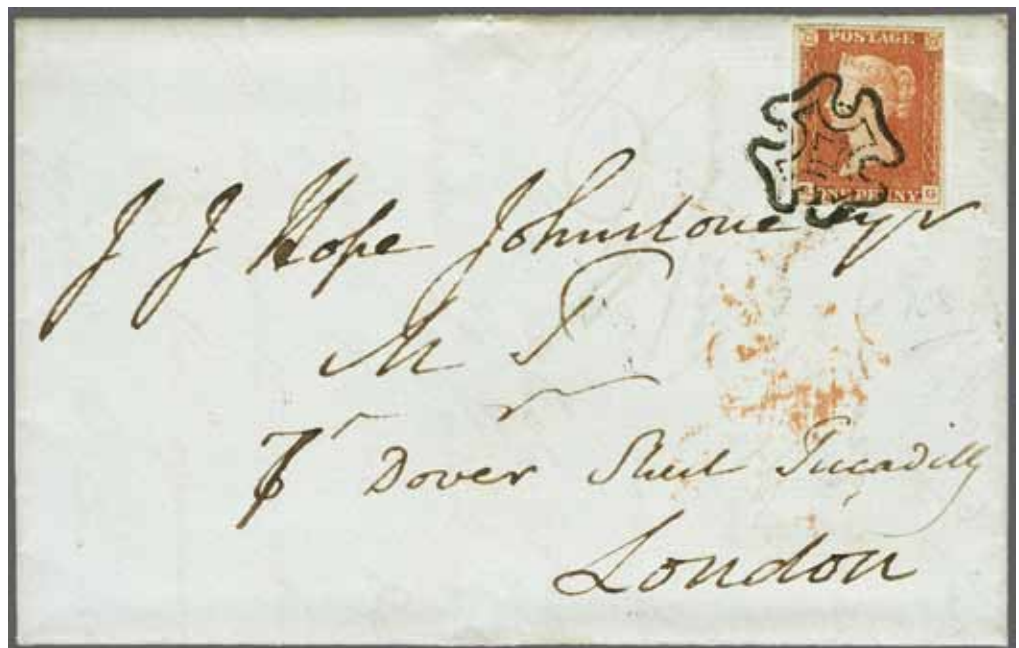 POSTAGE
ONE PENNY
G
J J Hope Johnstone Esqr
M P
7 Dover Street Piccadilly
London